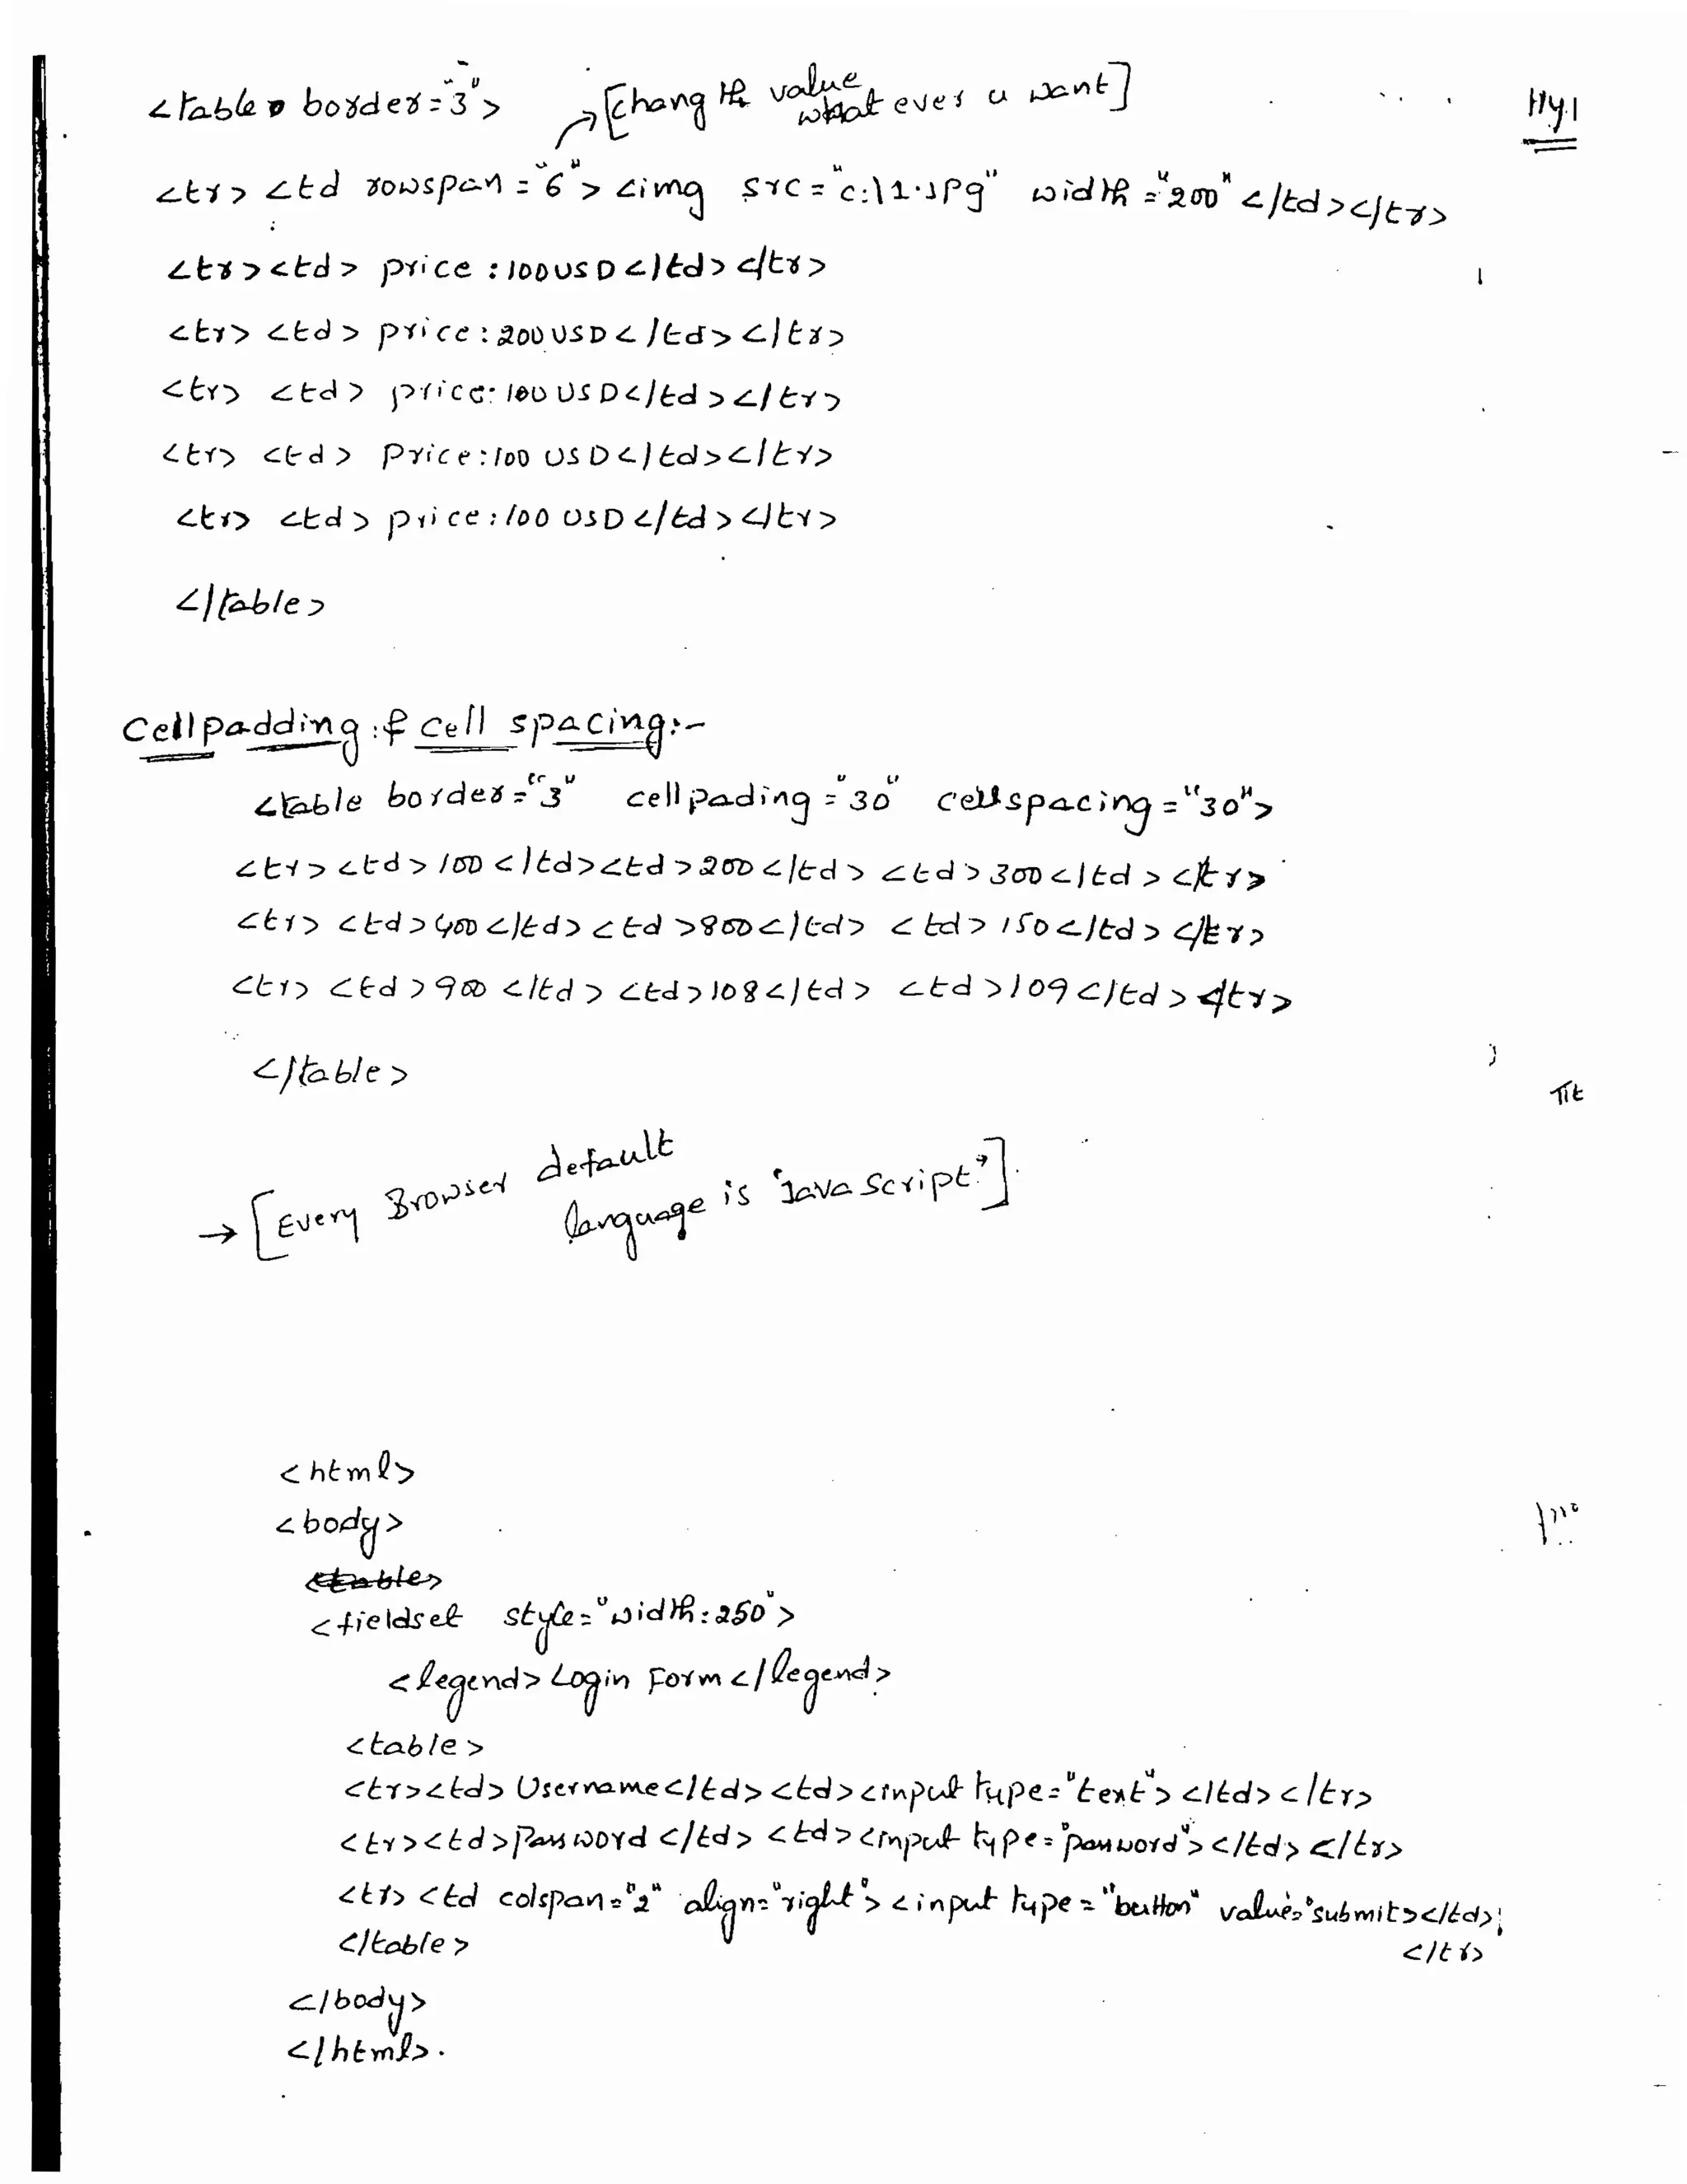 <table border="3">
[chang the value
what ever u want]
<tr> <td rowspan="6"> <img src="c:\1.jpg" width="200" </td></tr>
<tr><td> price :100USD</td></tr>
<tr> <td> price:200USD</td></tr>
<tr> <td> price:100USD</td></tr>
<tr> <td> Price:100 USD</td></tr>
<tr> <td> price:100 USD</td></tr>
</table>
Cellpadding:& Cell spacing:-
<table border="3" cellpading="30" cellspacing="30">
<tr><td>100</td><td>200</td> <td>300</td></tr>
<tr> <td>400</td><td>800</td> <td>150</td></tr>
<tr> <td>900</td> <td>108</td> <td>109</td></tr>
</table>
→ [Every Browser default
language is "Java Script."]
<html>
<body>
<table>
<fieldset style="width:250">
<legend>Login Form</legend>
<table>
<tr><td>Username</td><td><input type="text"></td></tr>
<tr><td>Password</td> <td><input type="password"></td></tr>
<tr> <td colspan="2" align="right"> <input type="button" value="submit></td>
</tr>
</table>
</body>
</html>.